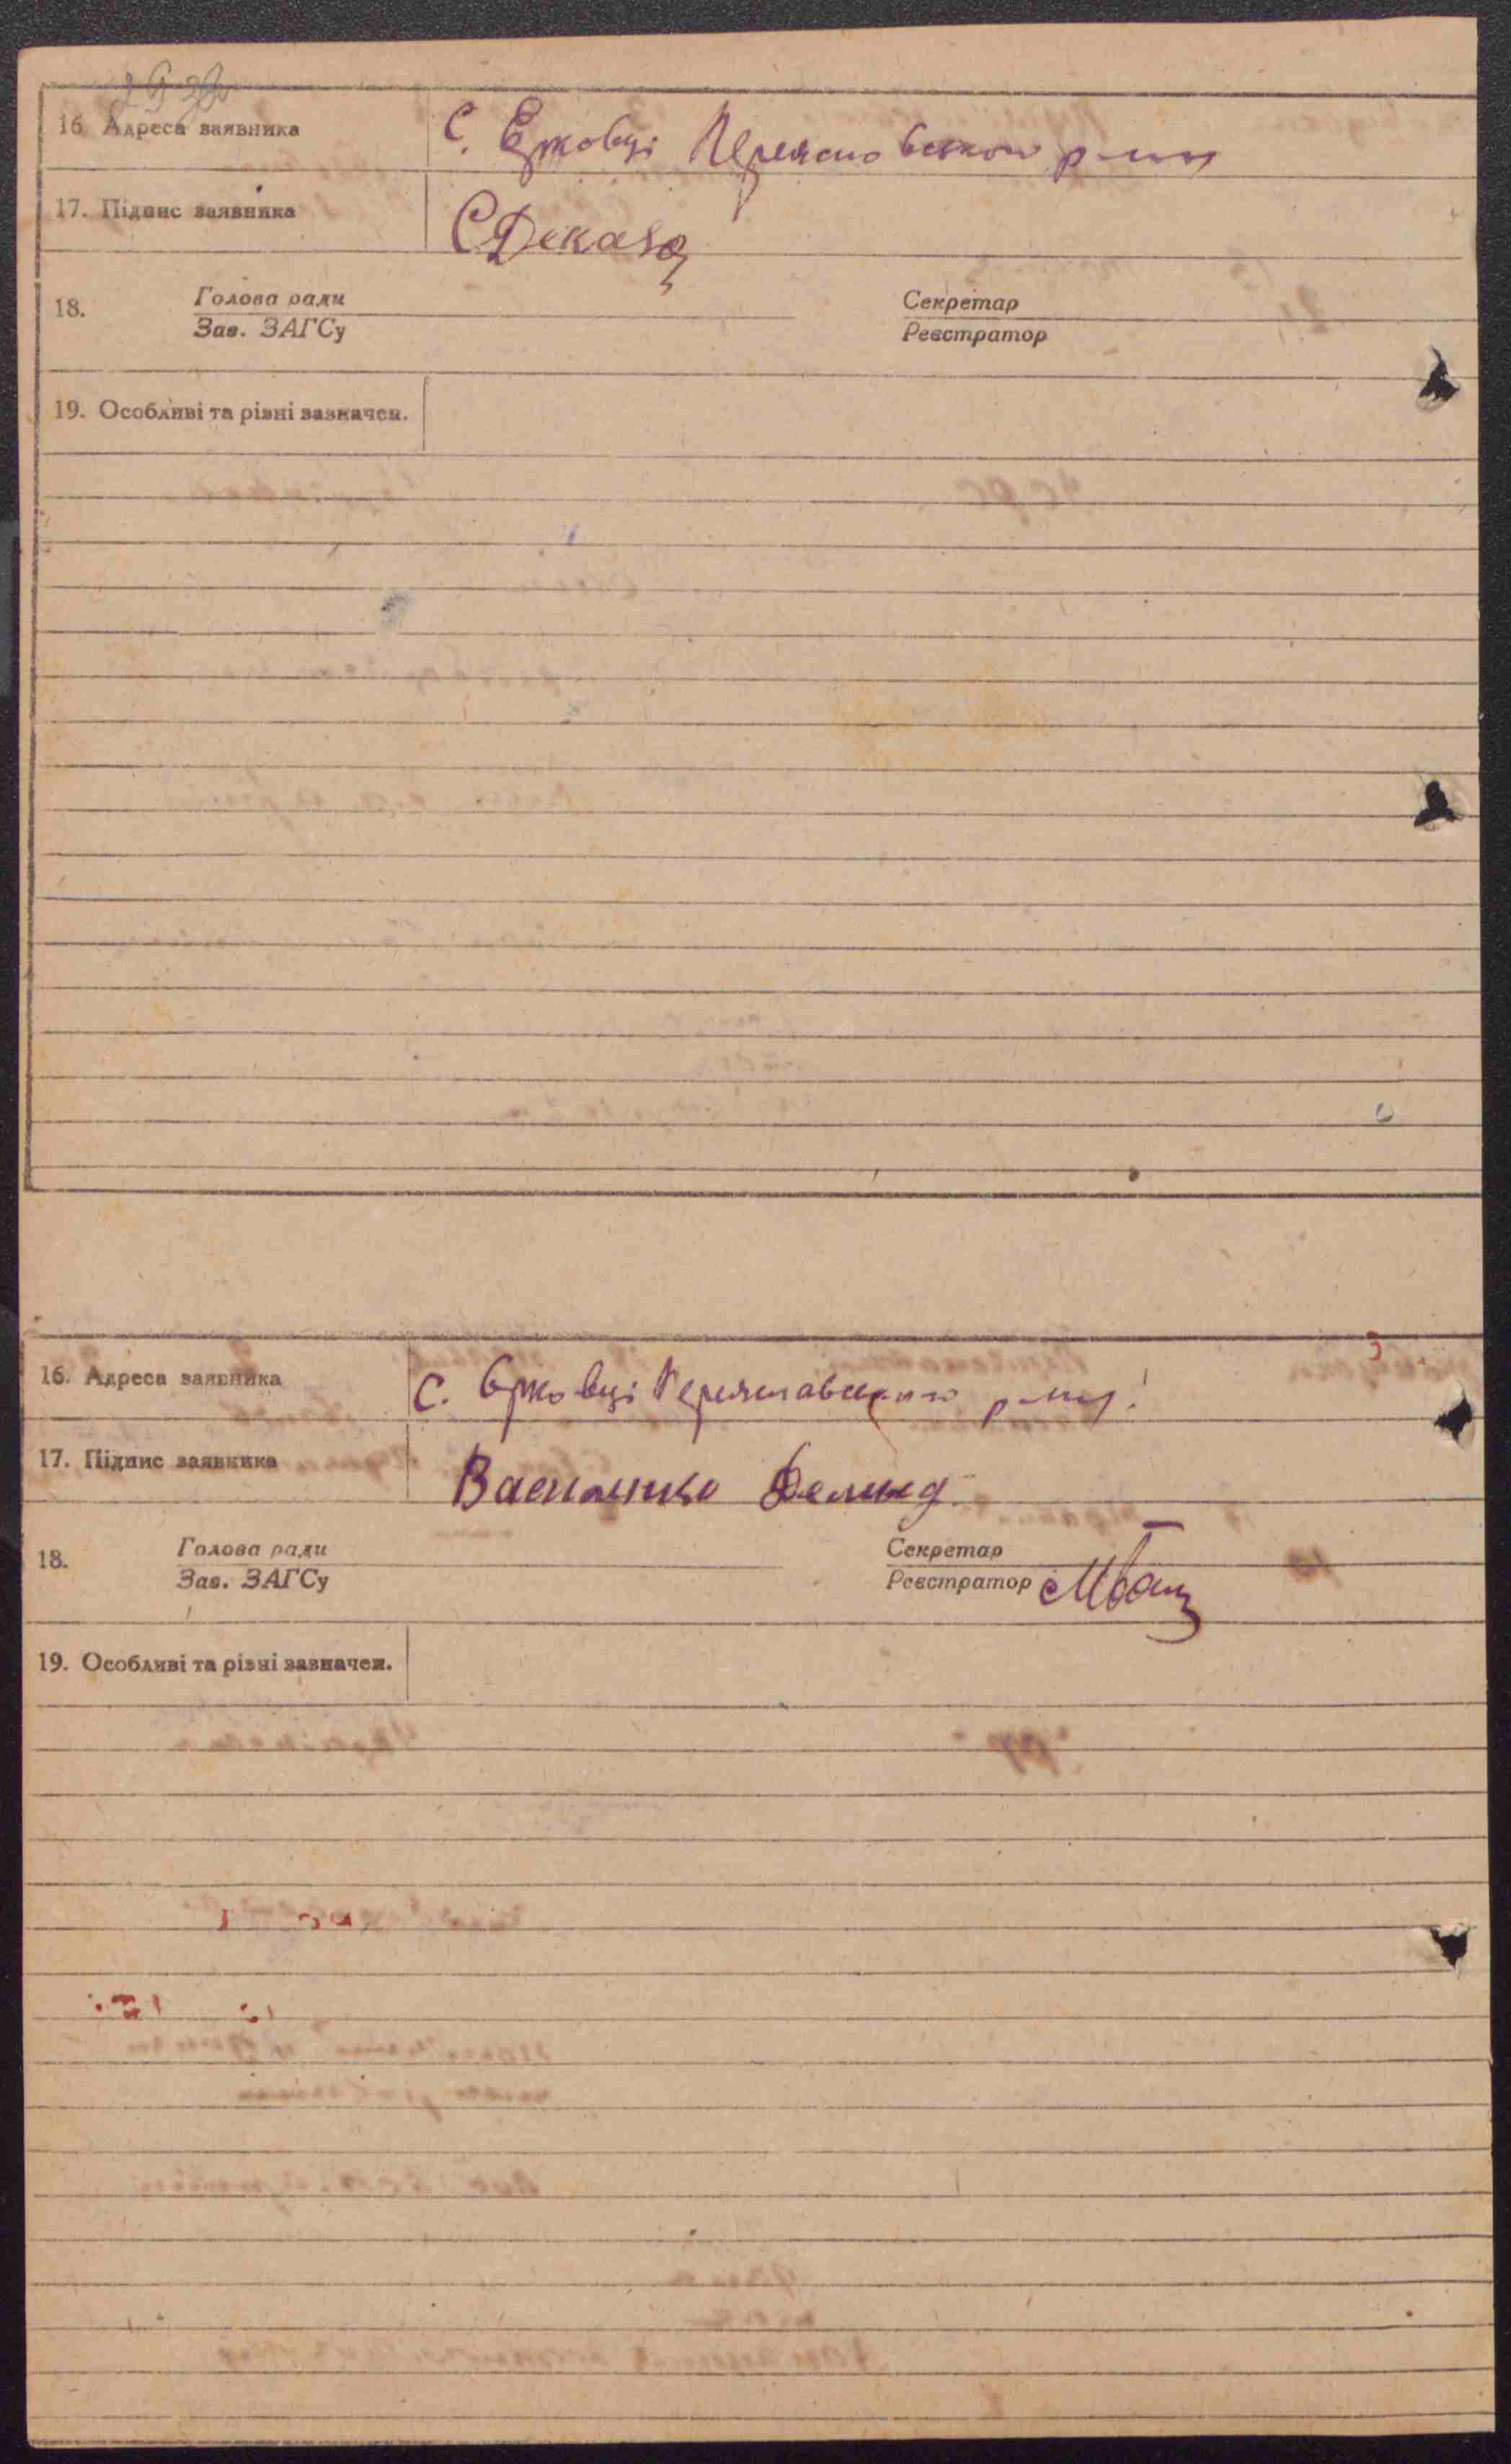 16. Адреса заявника с. Єрковці Переяславського р-ну
17. Підпис заявника СДекало
18. Голова ради Секретар
Зав. ЗАГСу Реєстратор
19. Особливі та різні зазначен.
16. Адреса заявника с. Єрковці Переяславського р-ну
17. Підпис заявника Василенко
18. Голова ради Секретар
Зав. ЗАГСу Реєстратор
19. Особливі та різні зазначен.